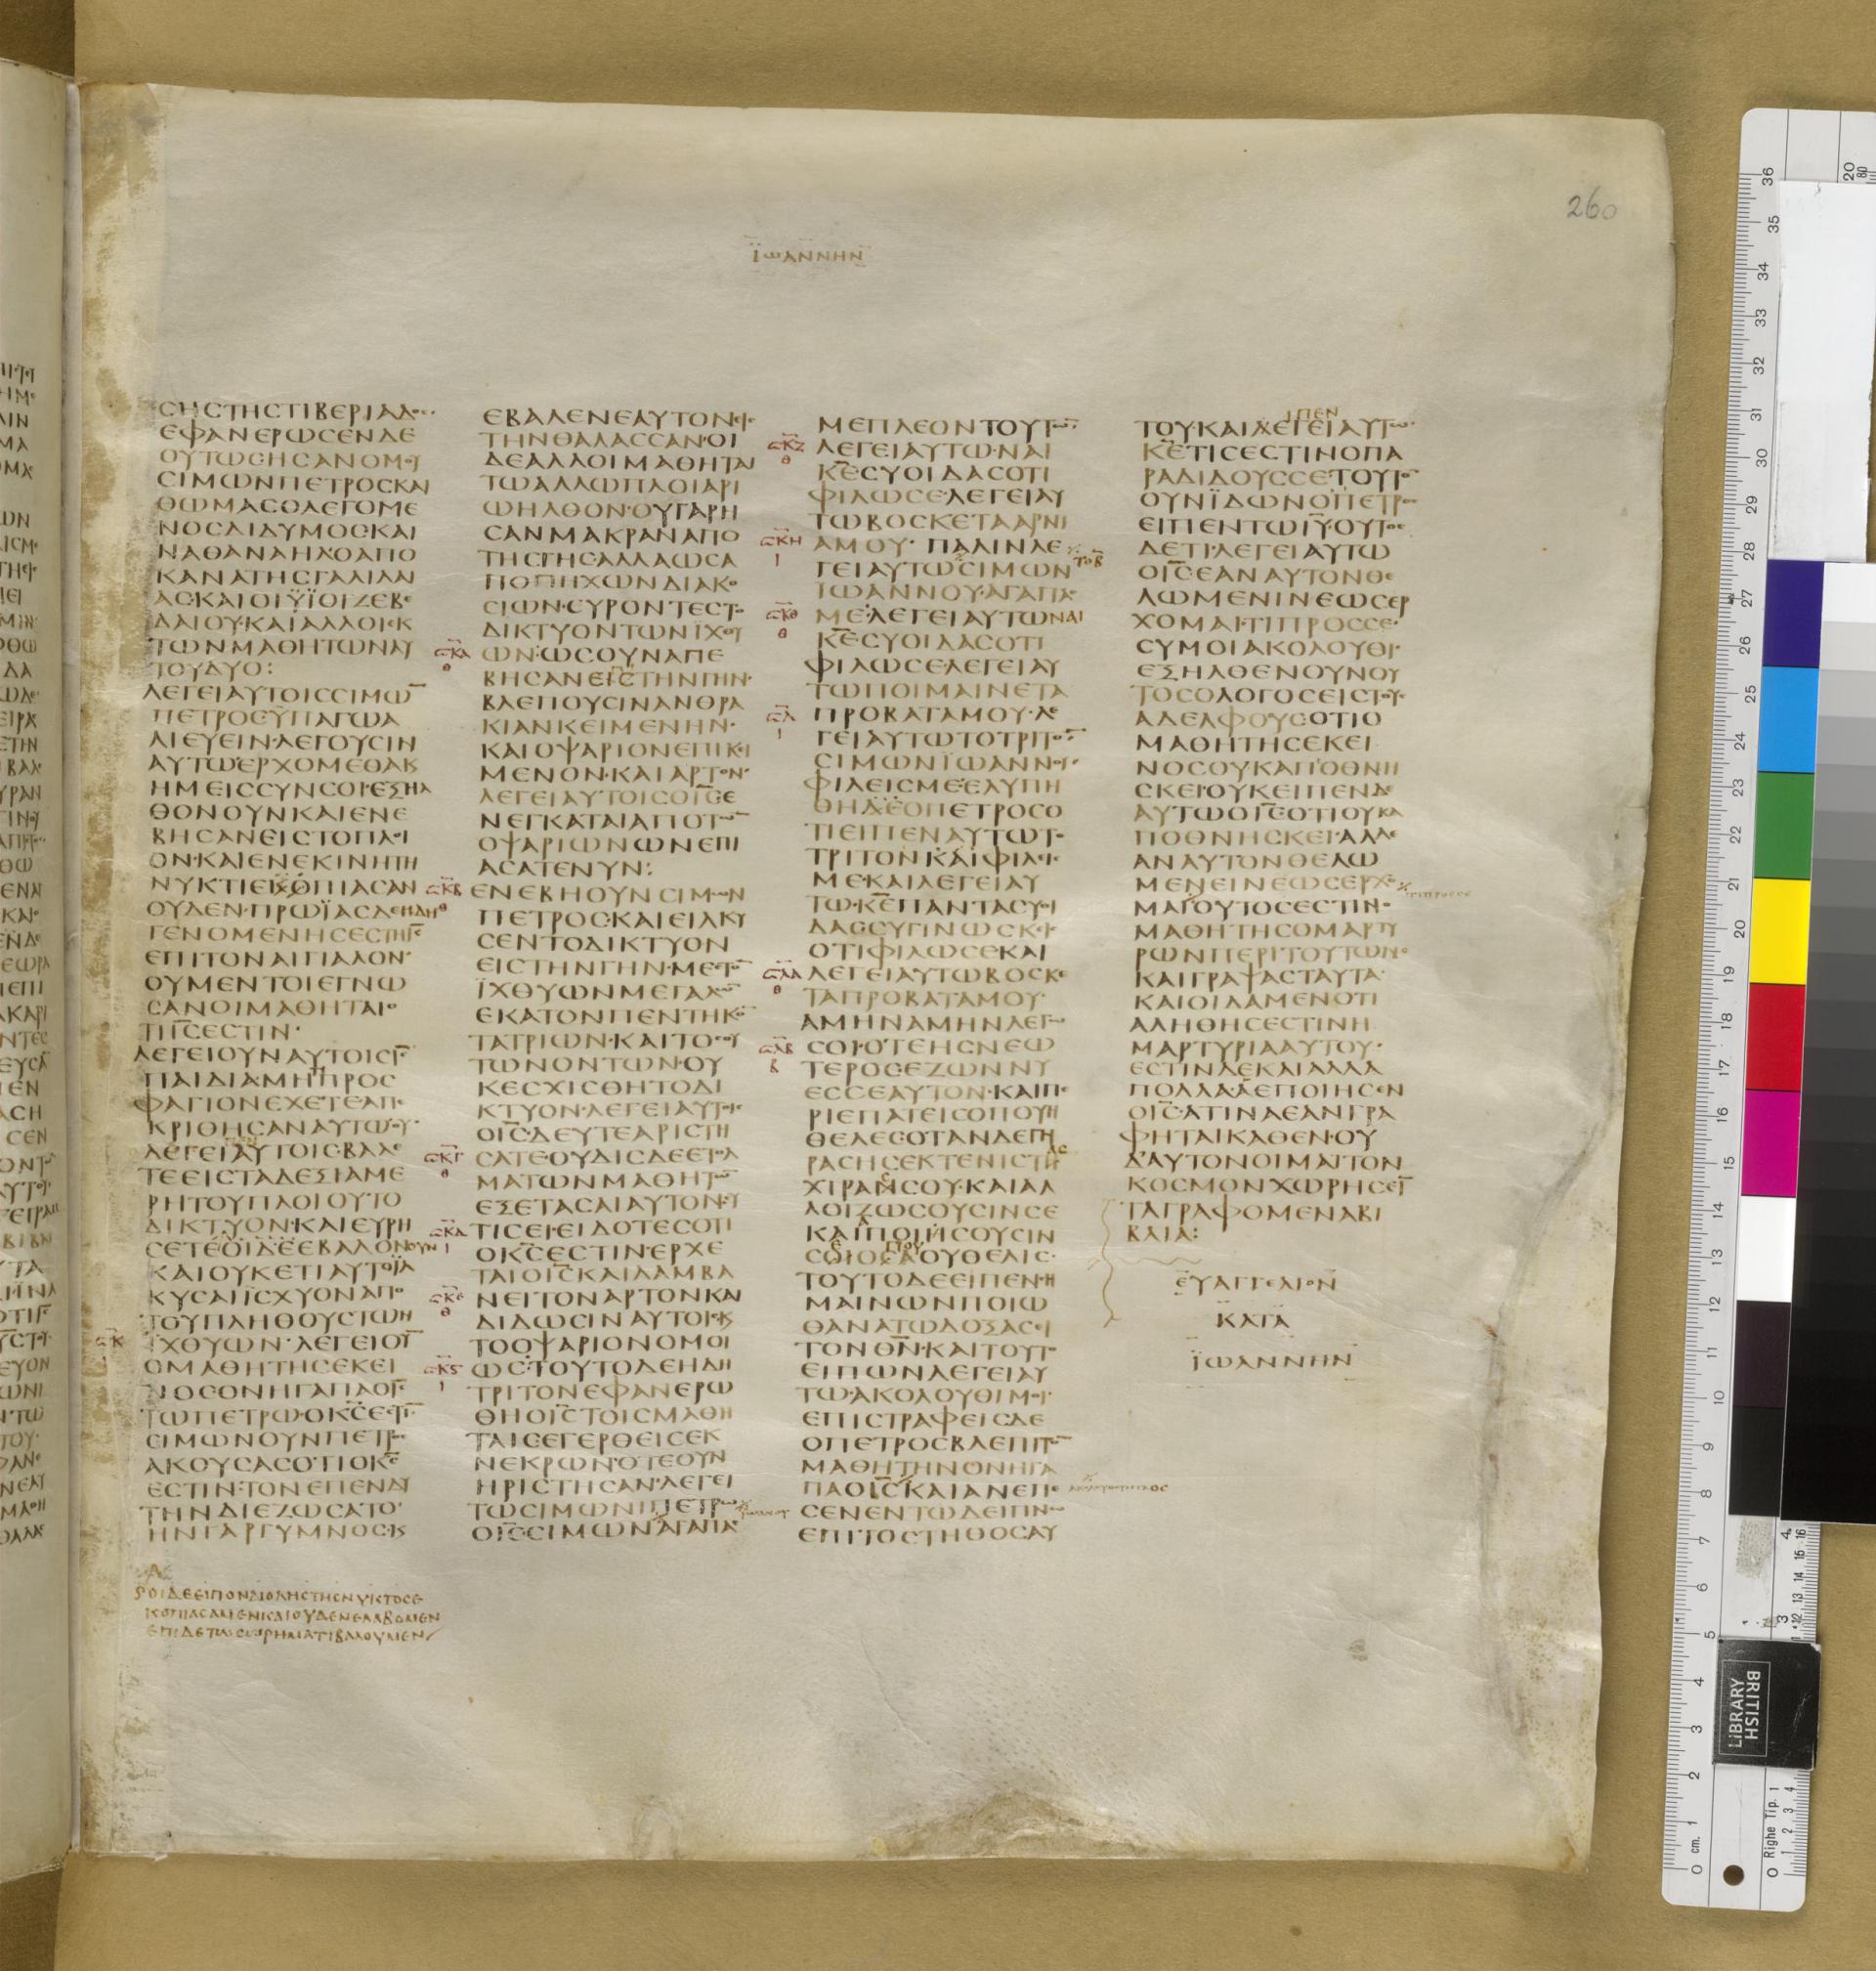 260
ΪΩΑΝΝΗΝ
ϹΗϹΤΗϹΤΙΒΕΡΙΑΔΟϹ
ΕΦΑΝΕΡΩϹΕΝΔΕ
ΟΥΤΩϹ·ΗϹΑΝΟΜΟΥ
ϹΙΜΩΝΠΕΤΡΟϹΚΑΙ
ΘΩΜΑϹΟΛΕΓΟΜΕ
ΝΟϹΔΙΔΥΜΟϹ·ΚΑΙ
ΝΑΘΑΝΑΗΛ·ΟΑΠΟ
ΚΑΝΑΤΗϹΓΑΛΙΛΑΙ
ΑϹ·ΚΑΙΟΙΫΪΟΙΖΕΒΕ
ΔΑΙΟΥ·ΚΑΙΑΛΛΟΙΕΚ
ΤΩΝΜΑΘΗΤΩΝΑΥ
ΤΟΥΔΥΟ:
ΛΕΓΕΙΑΥΤΟΙϹϹΙΜΩ̅
ΠΕΤΡΟϹΫΠΑΓΩΑ
ΛΙΕΥΕΙΝ·ΛΕΓΟΥϹΙΝ
ΑΥΤΩΕΡΧΟΜΕΘΑΚΑΙ
ΗΜΕΙϹϹΥΝϹΟΙ·ΕΞΗΛ
ΘΟΝΟΥΝΚΑΙΕΝΕ
ΒΗϹΑΝΕΙϹΤΟΠΛΟΙ
ΟΝ·ΚΑΙΕΝΕΚΙΝΗΤΗ
ΝΥΚΤΙΕΚΟΠΙΑϹΑΝ
ΟΥΔΕΝ·ΠΡΩΪΑϹΔΕΗΔΗ
ΓΕΝΟΜΕΝΗϹΕϹΤΗΙ̅Ϲ̅
ΕΠΙΤΟΝΑΙΓΙΑΛΟΝ·
ΟΥΜΕΝΤΟΙΕΓΝΩ
ϹΑΝΟΙΜΑΘΗΤΑΙΟ
ΤΙΙ̅Ϲ̅ΕϹΤΙΝ·
ΛΕΓΕΙΟΥΝΑΥΤΟΙϹΙ̅Ϲ̅
ΠΑΙΔΙΑΜΗΠΡΟϹ
ΦΑΓΙΟΝΕΧΕΤΕΑΠΕ
ΚΡΙΘΗϹΑΝΑΥΤΩ·ΟΥ·
ΛΕΓΕΙΑΥΤΟΙϹ·ΒΑΛΕ
ΤΕΕΙϹΤΑΔΕΞΙΑΜΕ
ΡΗΤΟΥΠΛΟΙΟΥΤΟ
ΔΙΚΤΥΟΝ·ΚΑΙΕΥΡΗ
ϹΕΤΕΟΙΔΕΕΒΑΛΟΝΟΥΝ
ΚΑΙΟΥΚΕΤΙΑΥΤΟΪΛ
ΚΥϹΑΙΪϹΧΥΟΝΑΠΟ
ΤΟΥΠΛΗΘΟΥϹΤΩΝ
ΪΧΘΥΩΝ·ΛΕΓΕΙΟΥ̅
ΟΜΑΘΗΤΗϹΕΚΕΙ
ΝΟϹΟΝΗΓΑΠΑΟΙ̅Ϲ̅
ΤΩΠΕΤΡΩ·ΟΚ̅Ϲ̅ΕϹΤΙ̅
ϹΙΜΩΝΟΥΝΠΕΤΡΟϹ
ΑΚΟΥϹΑϹΟΤΙΟΚ̅Ϲ̅
ΕϹΤΙΝ·ΤΟΝΕΠΕΝΔΥ
ΤΗΝΔΙΕΖΩϹΑΤΟ·
ΗΝΓΑΡΓΥΜΝΟϹ·ΚΑΙ
ΟΙΔΕΕΙΠΟΝΔΙΟΛΗϹΤΗϹΝΥΚΤΟϹΕ
ΚΟΠΙΑϹΑΜΕΝΚΑΙΟΥΔΕΝΕΛΑΒΟΜΕΝ
ΕΠΙΔΕΤΩϹΩΡΗΜΑΤΙΒΑΛΟΥΜΕΝ
ΕΒΑΛΕΝΕΑΥΤΟΝΕΙϹ
ΤΗΝΘΑΛΑϹϹΑΝ·ΟΙ
ΔΕΑΛΛΟΙΜΑΘΗΤΑΙ
ΤΩΑΛΛΩΠΛΟΙΑΡΙ
ΩΗΛΘΟΝ·ΟΥΓΑΡΗ
ϹΑΝΜΑΚΡΑΝΑΠΟ
ΤΗϹΓΗϹΑΛΛΑΩϹΑ
ΠΟΠΗΧΩΝΔΙΑΚΟ
ϹΙΩΝ·ϹΥΡΟΝΤΕϹΤΟ
ΔΙΚΤΥΟΝΤΩΝΪΧΘΥ
ΩΝ·ΩϹΟΥΝΑΠΕ
ΒΗϹΑΝΕΙϹΤΗΝΓΗΝ·
ΒΛΕΠΟΥϹΙΝΑΝΘΡΑ
ΚΙΑΝΚΕΙΜΕΝΗΝ·
ΚΑΙΟΨΑΡΙΟΝΕΠΙΚΕΙ
ΜΕΝΟΝ·ΚΑΙΑΡΤΟΝ·
ΛΕΓΕΙΑΥΤΟΙϹΟΙ̅Ϲ̅Ε
ΝΕΓΚΑΤΑΙΑΠΟΤΩ̅
ΟΨΑΡΙΩΝΩΝΕΠΙ
ΑϹΑΤΕΝΥΝ:
ΕΝΕΒΗΟΥΝϹΙΜΩΝ
ΠΕΤΡΟϹ·ΚΑΙΕΙΛΚΥ
ϹΕΝΤΟΔΙΚΤΥΟΝ
ΕΙϹΤΗΝΓΗΝ·ΜΕϹΤΟ̅
ΪΧΘΥΩΝΜΕΓΑΛΩ̅
ΕΚΑΤΟΝΠΕΝΤΗΚΟ̅
ΤΑΤΡΙΩΝ·ΚΑΙΤΟϹΟΥ
ΤΩΝΟΝΤΩΝ·ΟΥ
ΚΕϹΧΙϹΘΗΤΟΔΙ
ΚΤΥΟΝ·ΛΕΓΕΙΑΥΤΟΙϹ
ΟΙ̅Ϲ̅·ΔΕΥΤΕΑΡΙϹΤΗ
ϹΑΤΕ·ΟΥΔΙϹΔΕΕΤΟΛ
ΜΑΤΩΝΜΑΘΗΤΩ̅
ΕΞΕΤΑϹΑΙΑΥΤΟΝ·ϹΥ
ΤΙϹΕΙ·ΕΙΔΟΤΕϹΟΤΙ
ΟΚ̅Ϲ̅ΕϹΤΙΝ·ΕΡΧΕ
ΤΑΙΟΙ̅Ϲ̅ΚΑΙΛΑΜΒΑ
ΝΕΙΤΟΝΑΡΤΟΝΚΑΙ
ΔΙΔΩϹΙΝΑΥΤΟΙϹΚΑΙ
ΤΟΟΨΑΡΙΟΝΟΜΟΙ
ΩϹ·ΤΟΥΤΟΔΕΗΔΗ
ΤΡΙΤΟΝΕΦΑΝΕΡΩ
ΘΗΟΙ̅Ϲ̅ΤΟΙϹΜΑΘΗ
ΤΑΙϹΕΓΕΡΘΕΙϹΕΚ
ΝΕΚΡΩΝ·ΟΤΕΟΥΝ
ΗΡΙϹΤΗϹΑΝ·ΛΕΓΕΙ
ΤΩϹΙΜΩΝΙΠΕΤΡΩ
ΟΙ̅Ϲ̅ϹΙΜΩΝΑΓΑΠΑϹ
ΜΕΠΛΕΟΝΤΟΥΤΩ̅
ΛΕΓΕΙΑΥΤΩ·ΝΑΙ
Κ̅Ε̅ϹΥΟΙΔΑϹΟΤΙ
ΦΙΛΩϹΕ·ΛΕΓΕΙΑΥ
ΤΩΒΟϹΚΕΤΑΑΡΝΙ
ΑΜΟΥ·ΠΑΛΙΝΛΕ
ΓΕΙΑΥΤΩϹΙΜΩΝ
ΙΩΑΝΝΟΥ·ΑΓΑΠΑϹ
ΜΕ·ΛΕΓΕΙΑΥΤΩΝΑΙ
Κ̅Ε̅ϹΥΟΙΔΑϹΟΤΙ
ΦΙΛΩϹΕ·ΛΕΓΕΙΑΥ
ΤΩΠΟΙΜΑΙΝΕΤΑ
ΠΡΟΒΑΤΑΜΟΥ·ΛΕ
ΓΕΙΑΥΤΩΤΟΤΡΙΤΟ̅
ϹΙΜΩΝΪΩΑΝΝΟΥ·
ΦΙΛΕΙϹΜΕ·ΕΛΥΠΗ
ΘΗΔΕΟΠΕΤΡΟϹΟ
ΤΙΕΙΠΕΝΑΥΤΩΤΟ
ΤΡΙΤΟΝΚΑΙΦΙΛΕΙϹ
ΜΕ·ΚΑΙΛΕΓΕΙΑΥ
ΤΩ·Κ̅Ε̅ΠΑΝΤΑϹΥΟΙ
ΔΑϹϹΥΓΙΝΩϹΚΕΙϹ
ΟΤΙΦΙΛΩϹΕΚΑΙ
ΛΕΓΕΙΑΥΤΩΒΟϹΚΕ
ΤΑΠΡΟΒΑΤΑΜΟΥ·
ΑΜΗΝΑΜΗΝΛΕΓΩ
ϹΟΙ·ΟΤΕΗϹΝΕΩ
ΤΕΡΟϹΕΖΩΝΝΥ
ΕϹϹΕΑΥΤΟΝ·ΚΑΙΠΕ
ΡΙΕΠΑΤΕΙϹΟΠΟΥΗ
ΘΕΛΕϹ·ΟΤΑΝΔΕΓΗ
ΡΑϹΗϹΕΚΤΕΝΙϹΤΗ̅
ΧΙΡΑΝϹΟΥ·ΚΑΙΑΛ
ΛΟΙΖΩϹΟΥϹΙΝϹΕ
ΚΑΙΠΟΙΗϹΟΥϹΙΝ
ϹΟΙΟϹΑΟΥΘΕΛΙϹ·
ΤΟΥΤΟΔΕΕΙΠΕΝϹΗ
ΜΑΙΝΩΝΠΟΙΩ
ΘΑΝΑΤΩΔΟΞΑϹΕΙ
ΤΟΝΘ̅Ν̅·ΚΑΙΤΟΥΤΟ
ΕΙΠΩΝΛΕΓΕΙΑΥ
ΤΩ·ΑΚΟΛΟΥΘΙΜΟΙ·
ΕΠΙϹΤΡΑΦΕΙϹΔΕ
ΟΠΕΤΡΟϹΒΛΕΠΙΤΟ̅
ΜΑΘΗΤΗΝΟΝΗΓΑ
ΠΑΟΙ̅Ϲ̅ΚΑΙΑΝΕΠΕ
ϹΕΝΕΝΤΩΔΕΙΠΝΩ
ΕΠΙΤΟϹΤΗΘΟϹΑΥ
ΤΟΥ·ΚΑΙΛΕΓΕΙΑΥΤΩ·
Κ̅Ε̅ΤΙϹΕϹΤΙΝΟΠΑ
ΡΑΔΙΔΟΥϹϹΕ·ΤΟΥΤΟ̅
ΟΥΝΪΔΩΝΟΠΕΤΡΟϹ
ΕΙΠΕΝΤΩΙ̅Υ̅·ΟΥΤΟϹ
ΔΕΤΙ·ΛΕΓΕΙΑΥΤΩ
ΟΙ̅Ϲ̅ΕΑΝΑΥΤΟΝΘΕ
ΛΩΜΕΝΙΝΕΩϹΕΡ
ΧΟΜΑΙ·ΤΙΠΡΟϹϹΕ·
ϹΥΜΟΙΑΚΟΛΟΥΘΙ·
ΕΞΗΛΘΕΝΟΥΝΟΥ
ΤΟϹΟΛΟΓΟϹΕΙϹΤΟΥϹ
ΑΔΕΛΦΟΥϹΟΤΙΟ
ΜΑΘΗΤΗϹΕΚΕΙ
ΝΟϹΟΥΚΑΠΟΘΝΗ
ϹΚΕΙ·ΟΥΚΕΙΠΕΝΔΕ
ΑΥΤΩΟΙ̅Ϲ̅ΟΤΙΟΥΚΑ
ΠΟΘΝΗϹΚΕΙ·ΑΛΛΕ
ΑΝΑΥΤΟΝΘΕΛΩ
ΜΕΝΕΙΝΕΩϹΕΡΧΟ
ΜΑΙΟΥΤΟϹΕϹΤΙΝΟ
ΜΑΘΗΤΗϹΟΜΑΡΤΥ
ΡΩΝΠΕΡΙΤΟΥΤΩΝΟ
ΚΑΙΓΡΑΨΑϹΤΑΥΤΑ·
ΚΑΙΟΙΔΑΜΕΝΟΤΙ
ΑΛΗΘΗϹΕϹΤΙΝΗ
ΜΑΡΤΥΡΙΑΑΥΤΟΥ·
ΕϹΤΙΝΔΕΚΑΙΑΛΛΑ
ΠΟΛΛΑ·ΑΕΠΟΙΗϹΕΝ
ΟΙ̅Ϲ̅·ΑΤΙΝΑΕΑΝΓΡΑ
ΦΗΤΑΙΚΑΘΕΝ·ΟΥ
Δ'ΑΥΤΟΝΟΙΜΑΙΤΟΝ
ΚΟϹΜΟΝΧΩΡΗϹΕΙ̅
ΤΑΓΡΑΦΟΜΕΝΑΒΙ
ΒΛΙΑ:
ΕΥΑΓΓΕΛΙΟΝ
ΚΑΤΑ
ΪΩΑΝΝΗΝ
BRITISH
LIBRARY
Righe Tip.
cm.